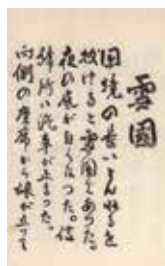 雪國
国境の長いトンネルを
抜けると雪国であった。
夜の底が白くなった。信
号所に汽車が止まった。
向側の座席から娘が立って